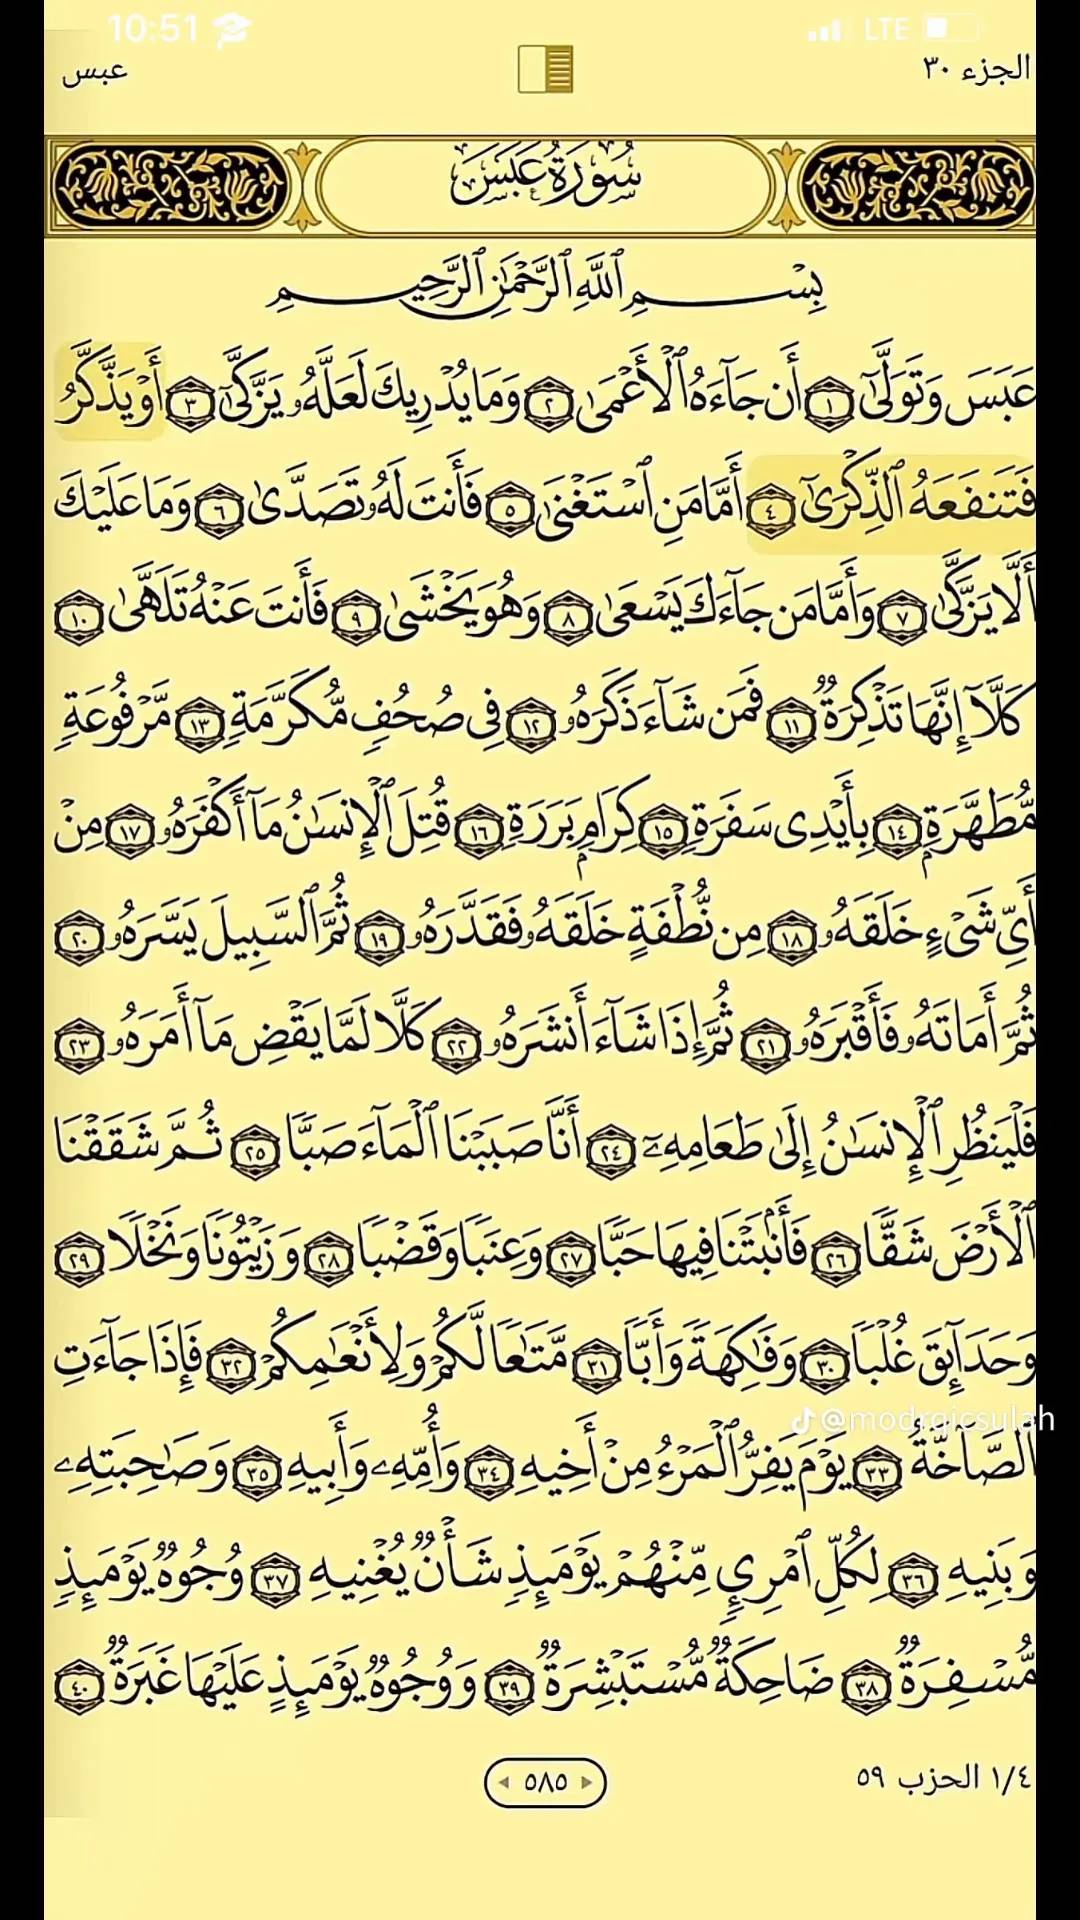 10:51 LTE
الجزء ٣٠ عبس
سُورَةُ عَبَسَ
بِسْمِ ٱللَّهِ ٱلرَّحْمَٰنِ ٱلرَّحِيمِ
عَبَسَ وَتَوَلَّىٰٓ ١ أَن جَآءَهُ ٱلْأَعْمَىٰ ٢ وَمَا يُدْرِيكَ لَعَلَّهُۥ يَزَّكَّىٰٓ ٣ أَوْ يَذَّكَّرُ
فَتَنفَعَهُ ٱلذِّكْرَىٰٓ ٤ أَمَّا مَنِ ٱسْتَغْنَىٰ ٥ فَأَنتَ لَهُۥ تَصَدَّىٰ ٦ وَمَا عَلَيْكَ
أَلَّا يَزَّكَّىٰ ٧ وَأَمَّا مَن جَآءَكَ يَسْعَىٰ ٨ وَهُوَ يَخْشَىٰ ٩ فَأَنتَ عَنْهُ تَلَهَّىٰ ١٠
كَلَّآ إِنَّهَا تَذْكِرَةٌ ١١ فَمَن شَآءَ ذَكَرَهُۥ ١٢ فِى صُحُفٍ مُّكَرَّمَةٍ ١٣ مَّرْفُوعَةٍ
مُّطَهَّرَةٍۭ ١٤ بِأَيْدِى سَفَرَةٍ ١٥ كِرَامٍۭ بَرَرَةٍ ١٦ قُتِلَ ٱلْإِنسَٰنُ مَآ أَكْفَرَهُۥ ١٧ مِنْ
أَىِّ شَىْءٍ خَلَقَهُۥ ١٨ مِن نُّطْفَةٍ خَلَقَهُۥ فَقَدَّرَهُۥ ١٩ ثُمَّ ٱلسَّبِيلَ يَسَّرَهُۥ ٢٠
ثُمَّ أَمَاتَهُۥ فَأَقْبَرَهُۥ ٢١ ثُمَّ إِذَا شَآءَ أَنشَرَهُۥ ٢٢ كَلَّا لَمَّا يَقْضِ مَآ أَمَرَهُۥ ٢٣
فَلْيَنظُرِ ٱلْإِنسَٰنُ إِلَىٰ طَعَامِهِۦٓ ٢٤ أَنَّا صَبَبْنَا ٱلْمَآءَ صَبًّا ٢٥ ثُمَّ شَقَقْنَا
ٱلْأَرْضَ شَقًّا ٢٦ فَأَنۢبَتْنَا فِيهَا حَبًّا ٢٧ وَعِنَبًا وَقَضْبًا ٢٨ وَزَيْتُونًا وَنَخْلًا ٢٩
وَحَدَآئِقَ غُلْبًا ٣٠ وَفَٰكِهَةً وَأَبًّا ٣١ مَّتَٰعًا لَّكُمْ وَلِأَنْعَٰمِكُمْ ٣٢ فَإِذَا جَآءَتِ
@modrqicsulah
ٱلصَّآخَّةُ ٣٣ يَوْمَ يَفِرُّ ٱلْمَرْءُ مِنْ أَخِيهِ ٣٤ وَأُمِّهِۦ وَأَبِيهِ ٣٥ وَصَٰحِبَتِهِۦ
وَبَنِيهِ ٣٦ لِكُلِّ ٱمْرِئٍ مِّنْهُمْ يَوْمَئِذٍ شَأْنٌ يُغْنِيهِ ٣٧ وُجُوهٌ يَوْمَئِذٍ
مُّسْفِرَةٌ ٣٨ ضَاحِكَةٌ مُّسْتَبْشِرَةٌ ٣٩ وَوُجُوهٌ يَوْمَئِذٍ عَلَيْهَا غَبَرَةٌ ٤٠
١/٤ الحزب ٥٩ ٥٨٥